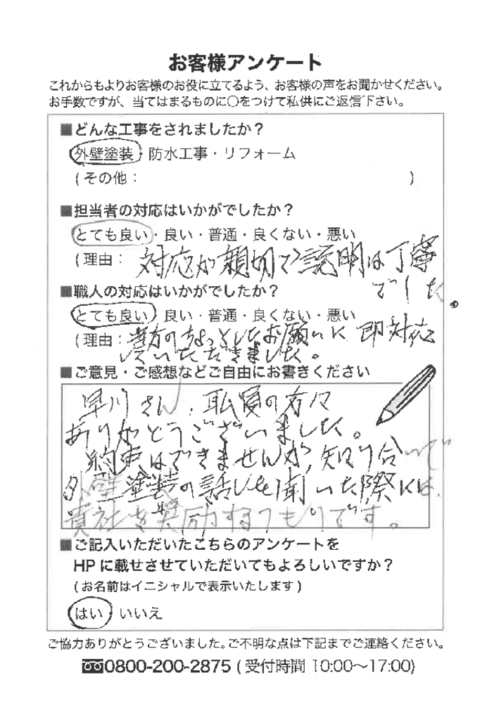 お客様アンケート
これからもよりお客様のお役に立てるよう、お客様の声をお聞かせください。
お手数ですが、当てはまるものに〇をつけて私供にご返信下さい。
■どんな工事をされましたか？
外壁塗装・防水工事・リフォーム
(その他： )
■担当者の対応はいかがでしたか？
とても良い・良い・普通・良くない・悪い
(理由： 対応が親切で説明は丁寧
でした。
■職人の対応はいかがでしたか？
とても良い・良い・普通・良くない・悪い
(理由： 当方のちょっとしたお願いに即対応
していただきました。
■ご意見・ご感想などご自由にお書きください
早川さん、職員の方々
ありがとうございました。
約束はできませんが、知り合いで
外壁塗装の話しを聞いた際には、
貴社を奨励するつもりです。
■ご記入いただいたこちらのアンケートを
HPに載せさせていただいてもよろしいですか？
(お名前はイニシャルで表示いたします)
はい・いいえ
ご協力ありがとうございました。ご不明な点は下記までご連絡ください。
0800-200-2875 (受付時間 10:00～17:00)